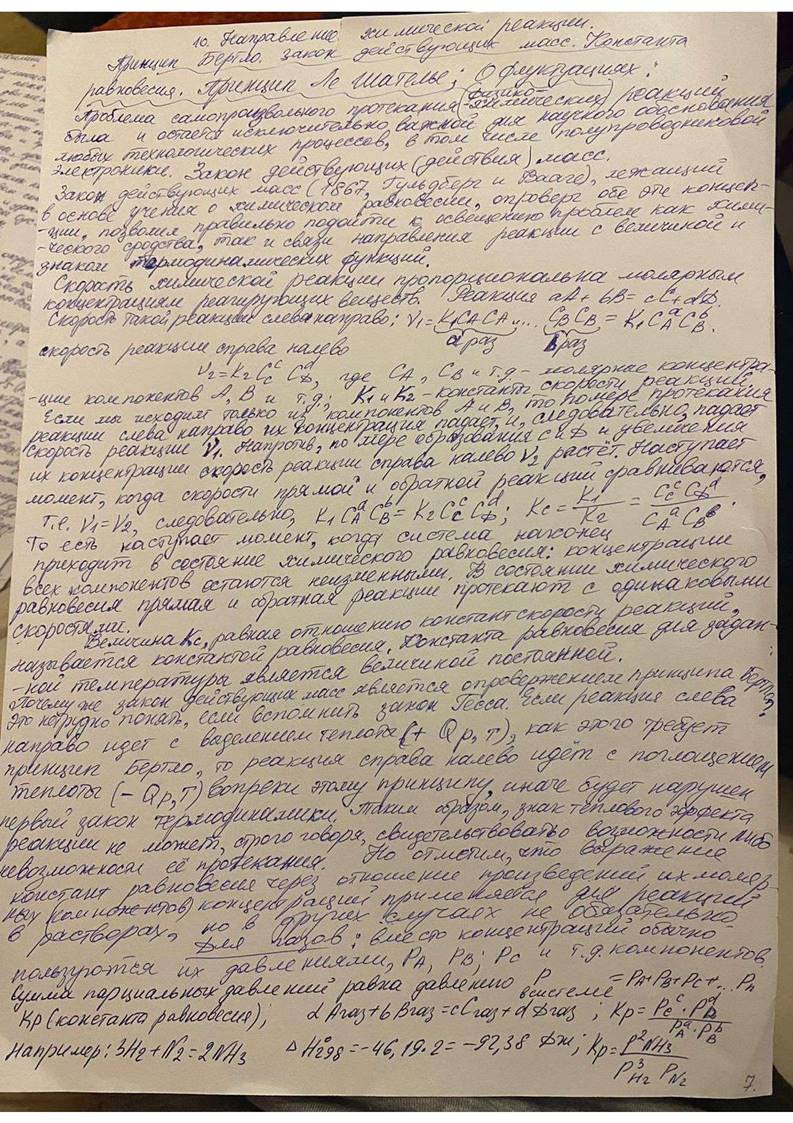 10. Направление химической реакции.
Принцип Бертло. Закон действующих масс. Константа
равновесия. Принцип Ле Шателье; О флуктуациях:
Проблема самопроизвольного протекания (физико-химических) реакций
была и остается исключительно важной для научного обоснования
любых технологических процессов, в том числе полупроводниковой
электроники. Закон действующих (действия) масс.
Закон действующих масс (1867, Гульдберг и Вааге), лежащий
в основе учения о химической равновесии, опроверг обе эти концеп-
-ции, позволил правильно подойти к освещению проблем как хими-
-ческого сродства, так и связи направления реакции с величиной и
знаком термодинамических функций.
Скорасть химической реакции пропорциональна молярным
концентрациям реагирующих веществ. Реакция aA + bB = cC + dD.
Скорость такой реакции слева направо: v₁ = K₁CₐCₐ.... C_B C_B = K₁C_A^a C_B^b.
a раз b раз
скорость реакции справа налево
v₂ = K₂ C_C^c C_D^d, где C_A, C_B и т.д - молярные концентра-
-ции компонентов A, B и т.д.; K₁ и K₂ - константы скорости реакций.
Если мы исходим только из компонентов A и B, то по мере протекания
реакции слева направо их концентрация падает, и, следовательно, падает
скорость реакции V₁. Напротив, по мере образования C и D и увеличения
их концентрации скорость реакции справа налево V₂ растёт. Наступает
момент, когда скорости прямой и обратной реакций сравниваются,
т.е. v₁ = v₂, следовательно, K₁ C_A^a C_B^b = K₂ C_C^c C_D^d; K_C = K₁/K₂ = C_C^c C_D^d / C_A^a C_B^b.
То есть наступает момент, когда система наконец
приходит в состояние химического равновесия: концентрации
всех компонентов остаются неизменными. В состоянии химического
равновесия прямая и обратная реакции протекают с одинаковыми
скоростями.
Величина K_C, равная отношению констант скорости реакций,
называется константой равновесия. Константа равновесия для задан-
-ной температуры является величиной постоянной.
Почему же закон действующих масс является опровержением принципа Бертло?
Это нетрудно понять, если вспомнить закон Гесса. Если реакция слева
направо идет с выделением теплоты (+ Qp,T), как этого требует
принцип Бертло, то реакция справа налево идёт с поглощением
теплоты (- Qp,T) вопреки этому принципу, иначе будет нарушен
первый закон термодинамики. Таким образом, знак теплового эффекта
реакции не может, строго говоря, свидетельствовать о возможности либо
невозможности её протекания. Но отметим, что выражение
констант равновесия через отношение произведений их моляр-
ных компонентов) концентраций применяется для реакций
в растворах, но в других случаях не обязательно
Для газов: вместо концентраций обычно
пользуются их давлениями, P_A, P_B; P_C и т.д. компонентов.
Сумма парциальных давлений равна давлению P системе = P_A+P_B+P_C+... P_n
Kp (константа равновесия); aAгаз + bBгаз = cCгаз + dDгаз; Kp = P_C^c · P_D^d / P_A^a · P_B^b
Например: 3H₂ + N₂ = 2NH₃ ΔH°₂₉₈ = -46,19·2 = -92,38 Дж; Kp = P²NH₃ / P³H₂ P N₂
7.